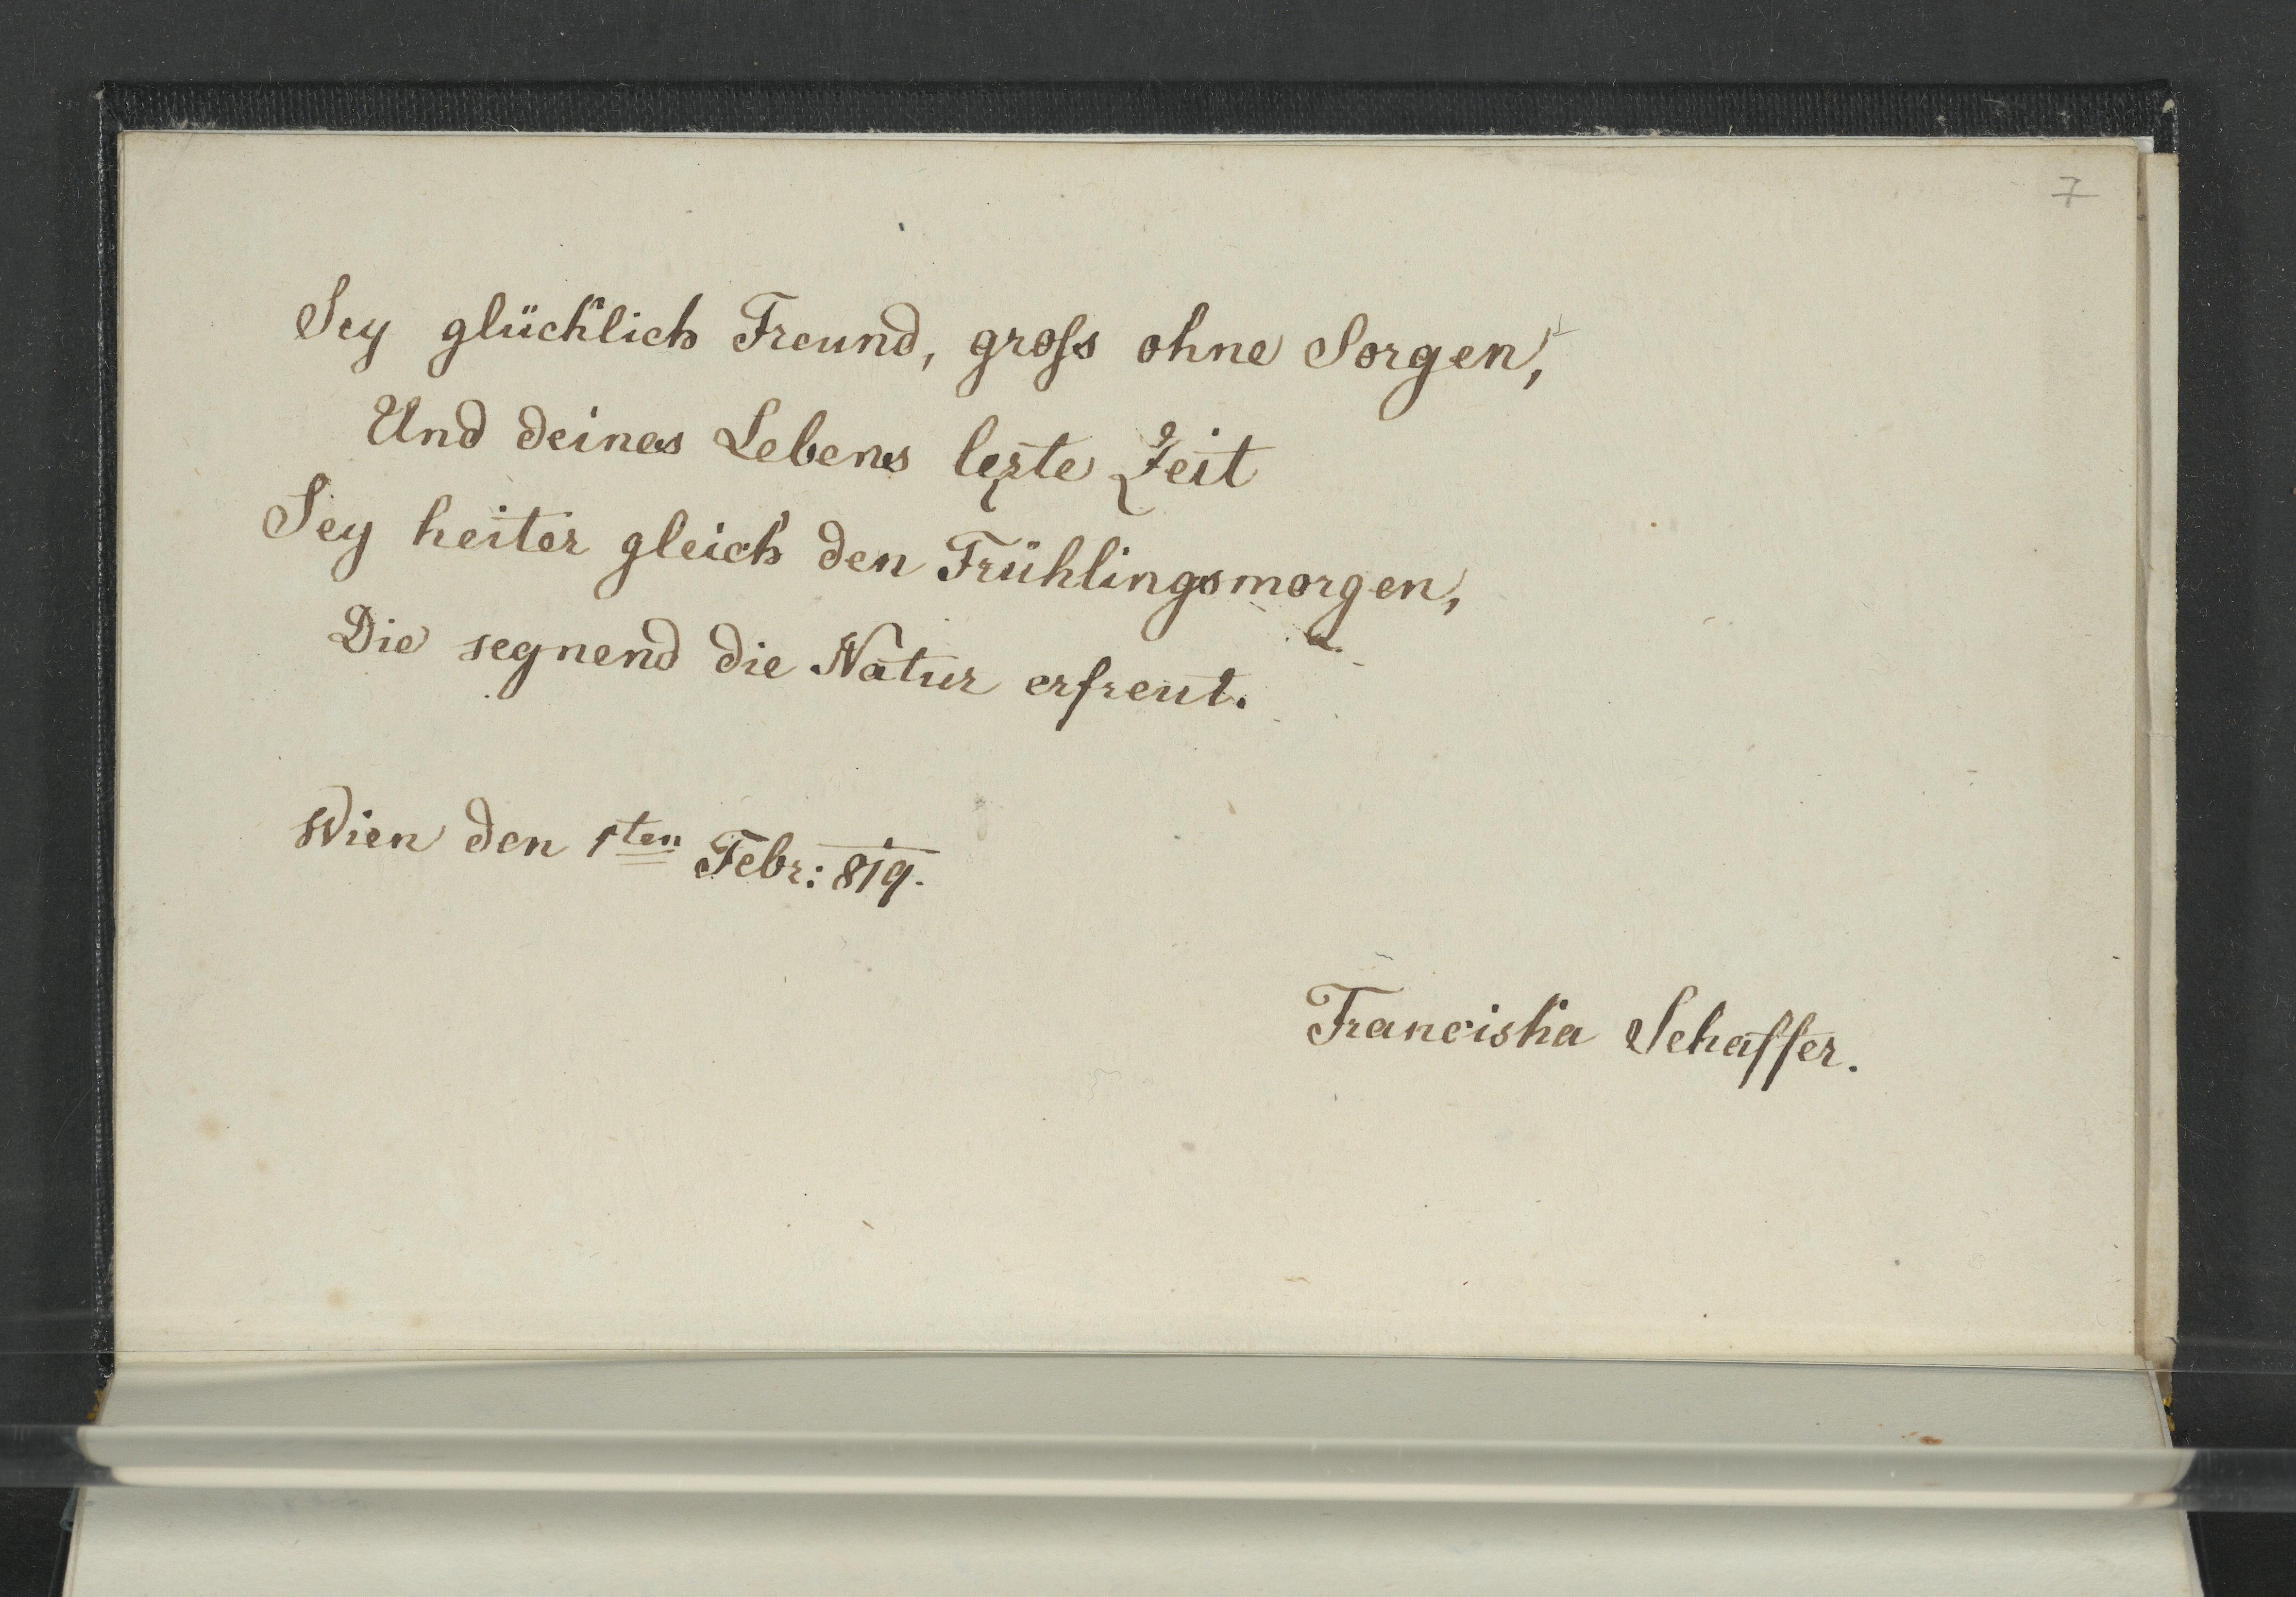 7
Sey glücklich Freund, groſs ohne Sorgen,
Und deines Lebens lezte Zeit
Sey heiter gleich den Frühlingsmorgen,
Die segnend die Natur erfreut.
Wien den 1ten Febr: 819.
Franciska Schaffer.